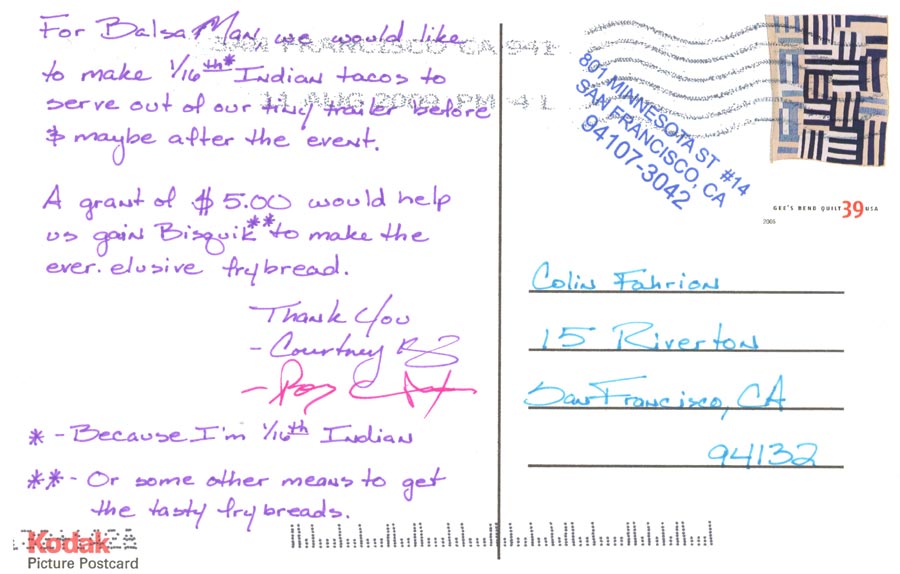 For Balsa Man, we would like
to make 1/16th* Indian tacos to
serve out of our tiny trailer before
& maybe after the event.
A grant of $5.00 would help
us gain Bisquik** to make the
ever.elusive frybread.
Thank You
- Courtney
* - Because I'm 1/16th Indian
** - Or some other means to get
the tasty frybreads.
Kodak
Picture Postcard
SAN FRANCISCO CA 941
11 AUG 2008 PM 4 L
801 MINNESOTA ST #14
SAN FRANCISCO, CA
94107-3042
GEE'S BEND QUILT 39 USA
2006
Colin Fahrion
15 Riverton
San Francisco, CA
94132